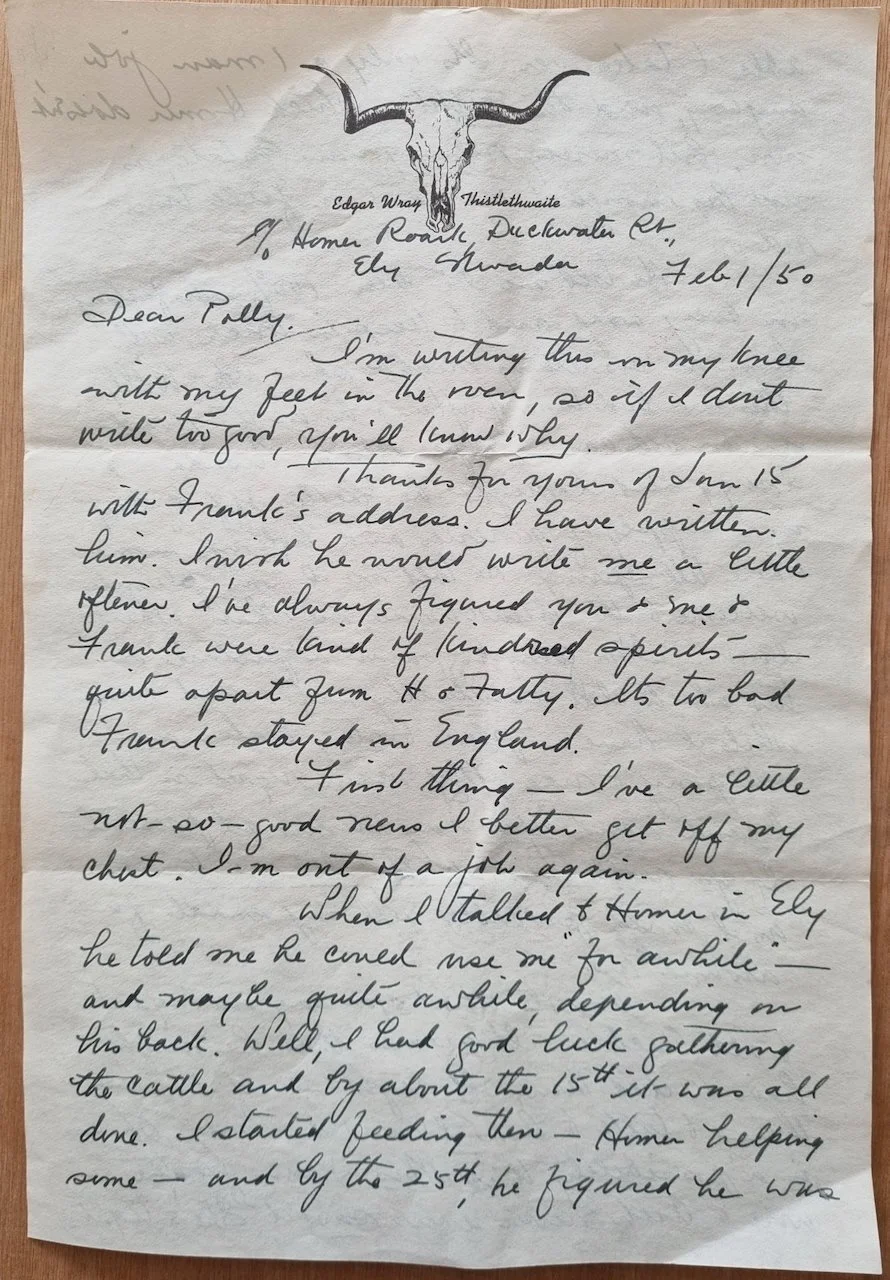 Edgar Wray Thistlethwaite
c/o Homer Roark, Duckwater Rt.,
Ely Nevada
Feb 1/50
Dear Polly.
I'm writing this on my knee
with my feet in the oven, so if I dont
write too good, you'll know why.
Thanks for yours of Jan 15
with Frank's address. I have written
him. I wish he would write me a little
oftener. I've always figured you & me &
Frank were kind of kindred spirits —
quite apart from H & Fatty. Its too bad
Frank stayed in England.
First thing — I've a little
not-so-good news I better get off my
chest. I-m out of a job again.
When I talked to Homer in Ely
he told me he could use me "for awhile" —
and maybe quite awhile, depending on
his back. Well, I had good luck gathering
the cattle and by about the 15th it was all
done. I started feeding then — Homer helping
some — and by the 25th, he figured he was
1 man job
Homer doesn't